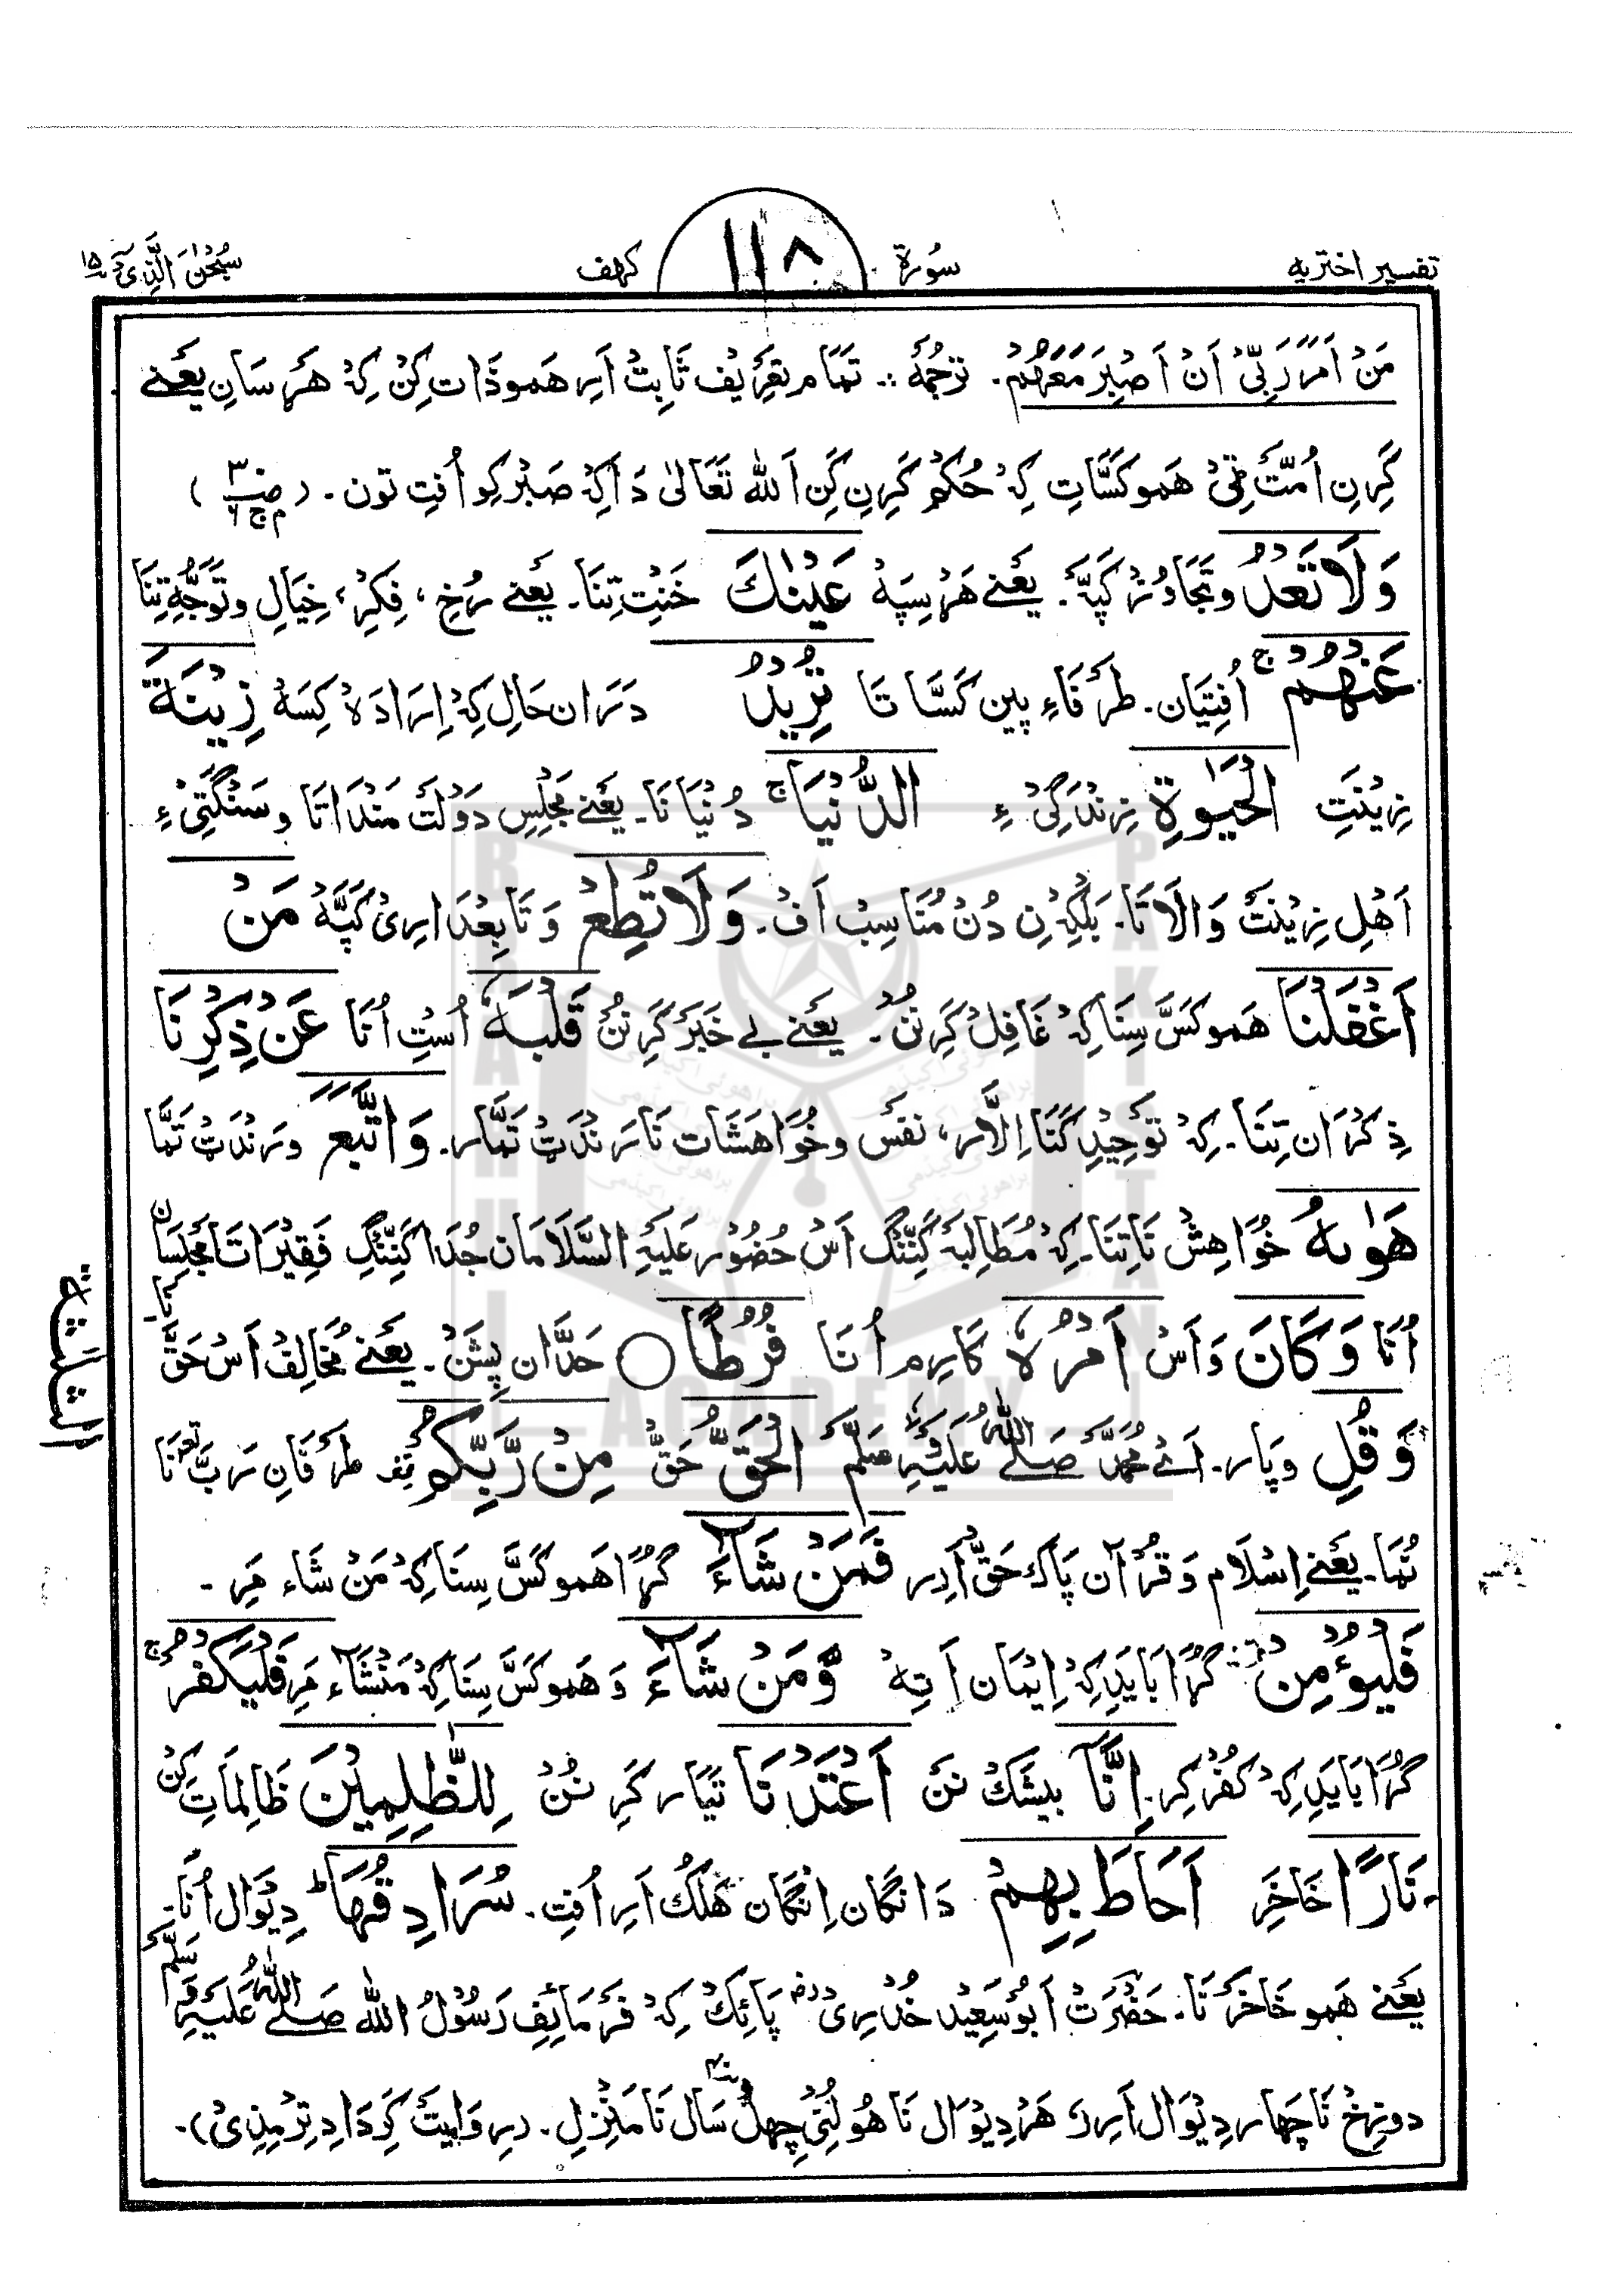 تفسیر اختریه سُورة ١١٨ کهف سُبْحٰنَ الَّذِیْ ١۵
مَنْ اَمَرَ رَبِّیْ اَنْ اَصْبِرَ مَعَهُمْ۔ ترجُمهٔ :۔ تمام تعریف ثابِتْ اَرِ هَمو ذات کِن کِهْ هَر سَانِ یعنے
کَرِنِ اُمّتَ ٹی هَمو کسّاتِ کِهْ حُکم کَرِنِ کَنِ اَلله تَعَالیٰ دَا کِهْ صَبْر کِو اُفتِ تون۔ ( )
وَلَا تَعْدُ و تجاوُز کپَّه۔ یعنے هَرْسِپَه عَیْنٰكَ خَنتِ تِنَا۔ یعنے رُخِ، فِکرِ، خِیَالِ و توَجُّهِ تِنَا
عَنْهُمْ ج اُفتِیان۔ طرفاءِ پین کَسَّاتَا تُرِیْدُ دَرَان حَالِ کِهْ اِرَادَهْ کِسَهْ زِیْنَةَ
زِیْنتِ الْحَیٰوةِ زِندَگِیْ ءِ الدُّنْیَا ج دُنْیَا نَا۔ یعنے مَجلِسِ دَوْلَتْ مَنداتَا و سَنگتِیْ ءِ
اَهْلِ زِیْنتْ وَالَاتَا۔ بَلکِهْ نِ دُنْ مُنَاسِبْ اَفْ۔ وَلَا تُطِعْ وَ تَابِعْدَارِیْ کَپَّهْ مَنْ
اَغْفَلْنَا هَمو کَسَّ سِنَا کِهْ غَافِلْ کَرِنُنْ۔ یعنے بے خَبَرْ کَرِ نُنْ قَلْبَهٗ اُستِ اُنَا عَنْ ذِکْرِنَا
ذِکْرَان تِنَا۔ کِهْ تَوحِیْدِ کَنَا اِلَّار، نَفس و خُوَاهَشَات نَا رَندَٹْ تَمَّار۔ وَاتَّبَعَ و رَندَٹْ تَمَّا
هَوٰىهُ خُوَاهِشْ نَا تِنَا۔ کِهْ مُطَالِبَهْ کَنِّنگ اَسْ حُضُوْر عَلَیْهِ السَّلَامَان جُدَا کَنِّنگِ فَقِیْرَاتَا مَجلِسَان
اُنَا وَکَانَ وَ اَسْ اَمْرُهٗ کَارِم اُنَا فُرُطًا ○ حَدَّان پِیشَنْ۔ یعنے مُخَالِفْ اَسْ حَقَّ
وَقُلِ و پار۔ اَے مُحَمَّد صَلے اللهُ عَلَیْهِ وَسَلَّمَ الْحَقُّ حَقَّ مِنْ رَّبِّکُمْ طرفَانِ رَبَّ نَا
نُمَا۔ یعنے اِسْلَام وَ قُرْآن پَاك حَقْ اَرِر فَمَنْ شَآءَ گُڑا هَمو کَسَّ سِنَا کِهْ مَنْ شَاء مَرِ۔
فَلْیُؤْمِنْ گُڑا بَایَدِ کِهْ اِیْمَان اَتِهْ وَّمَنْ شَآءَ وَ هَمو کَسَّ سِنَا کِهْ مَنْشَاء مَرِ فَلْیَکْفُرْ ج
گُڑا بَایَدِ کِهْ کُفْر کِر۔ اِنَّآ بیشَكْ نَنْ اَعْتَدْنَا تَیَّار کَرِ نُنْ لِلظّٰلِمِیْنَ ظَالِمَاتِ کِنْ
نَارًا خَاخَرِ اَحَاطَ بِهِمْ دَا نگان اِنگان هَلك اَرِ اُفتِ۔ سُرَادِقُهَا ط دِیْوَال اُنَا۔
یعنے هَمو خَاخَر نَا۔ حَضْرَتْ اَبُوْسَعِیْد خُدْرِی رض پَائِكْ کِهْ فَرْمَائِفِ رَسُوْلُ الله صَلے اللهُ عَلَیْهِ وَسَلَّمَ
دوزخْ نَا چَهار دِیْوَال اَرِرَ هَرْ دِیْوَال نَا هُولُنِّی چِهلْ سَال نَا مَنْزِلِ۔ (رِوَایتْ کِرِ دَادِ تِرْمِذِیْ)۔
الثلٰثة
BRAHUI ACADEMY PAKISTAN
براهوئی اکیڈمی